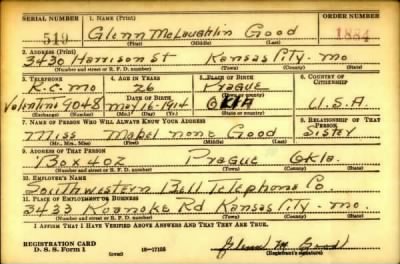 SERIAL NUMBER 1. NAME (Print) ORDER NUMBER
519 Glenn McLaughlin Good 1884
(First) (Middle) (Last)
2. ADDRESS (Print)
3430 Harrison St Kansas City - Mo
(Number and street or R. F. D. number) (Town) (County) (State)
3. TELEPHONE 4. AGE IN YEARS 5. PLACE OF BIRTH 6. COUNTRY OF CITIZENSHIP
K.C. Mo 26 Prague
Valentine 9048 DATE OF BIRTH May 16-1914 OKLA U.S.A.
(Exchange) (Number) (Mo.) (Day) (Yr.) (State or country)
7. NAME OF PERSON WHO WILL ALWAYS KNOW YOUR ADDRESS 8. RELATIONSHIP OF THAT PERSON
Miss Mabel none Good Sister
(Mr., Mrs., Miss) (First) (Middle) (Last)
9. ADDRESS OF THAT PERSON
Box 402 Prague Okla.
(Number and street or R. F. D. number) (Town) (County) (State)
10. EMPLOYER'S NAME
Southwestern Bell Telephone Co.
11. PLACE OF EMPLOYMENT OR BUSINESS
3433 Roanoke Rd Kansas City - Mo.
(Number and street or R. F. D. number) (Town) (County) (State)
I AFFIRM THAT I HAVE VERIFIED ABOVE ANSWERS AND THAT THEY ARE TRUE.
REGISTRATION CARD
D. S. S. Form 1 (over) 16-17105 Glenn M Good
(Registrant's signature)